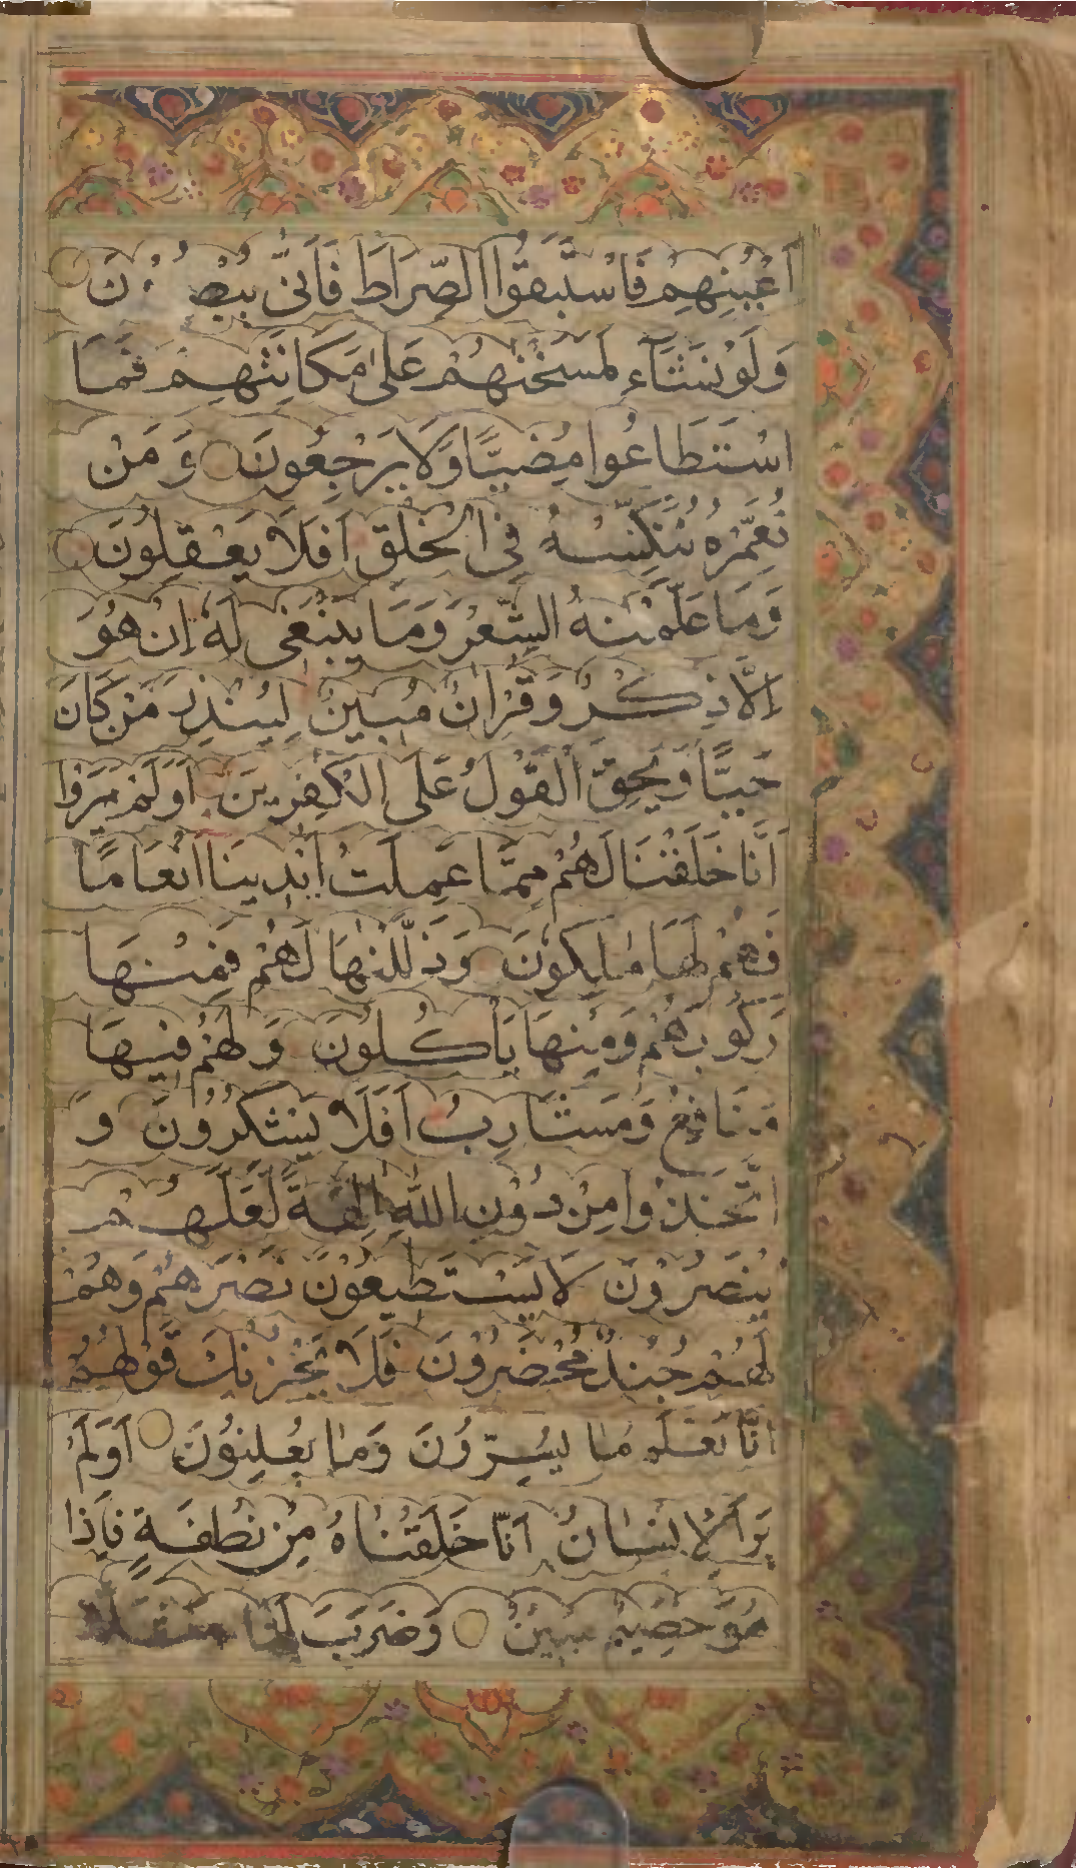 اَعْيُنِهِمْ فَاسْتَبَقُوا الصِّرَاطَ فَاَنّٰى
وَلَوْ نَشَآءُ لَمَسَخْنٰهُمْ عَلٰى مَكَانَتِهِمْ فَمَا
اسْتَطَاعُوا مُضِيًّا وَلَا يَرْجِعُونَ وَمَنْ
نُعَمِّرْهُ نُنَكِّسْهُ فِي الْخَلْقِ اَفَلَا يَعْقِلُونَ
وَمَا عَلَّمْنٰهُ الشِّعْرَ وَمَا يَنْبَغِي لَهُ اِنْ هُوَ
اِلَّا ذِكْرٌ وَقُرْاٰنٌ مُبِينٌ لِيُنْذِرَ مَنْ كَانَ
حَيًّا وَيَحِقَّ الْقَوْلُ عَلَى الْكٰفِرِينَ اَوَلَمْ يَرَوْا
اَنَّا خَلَقْنَا لَهُمْ مِمَّا عَمِلَتْ اَيْدِينَا اَنْعَامًا
فَهُمْ لَهَا مٰلِكُونَ وَذَلَّلْنٰهَا لَهُمْ فَمِنْهَا
رَكُوبُهُمْ وَمِنْهَا يَأْكُلُونَ وَلَهُمْ فِيهَا
مَنَافِعُ وَمَشَارِبُ اَفَلَا يَشْكُرُونَ وَ
اتَّخَذُوا مِنْ دُونِ اللّٰهِ اٰلِهَةً لَعَلَّهُمْ
يُنْصَرُونَ لَا يَسْتَطِيعُونَ نَصْرَهُمْ وَهُمْ
لَهُمْ جُنْدٌ مُحْضَرُونَ فَلَا يَحْزُنْكَ قَوْلُهُمْ
اِنَّا نَعْلَمُ مَا يُسِرُّونَ وَمَا يُعْلِنُونَ اَوَلَمْ
يَرَ الْاِنْسَانُ اَنَّا خَلَقْنَاهُ مِنْ نُطْفَةٍ فَاِذَا
هُوَ خَصِيمٌ مُبِينٌ وَضَرَبَ لَنَا مَثَلًا